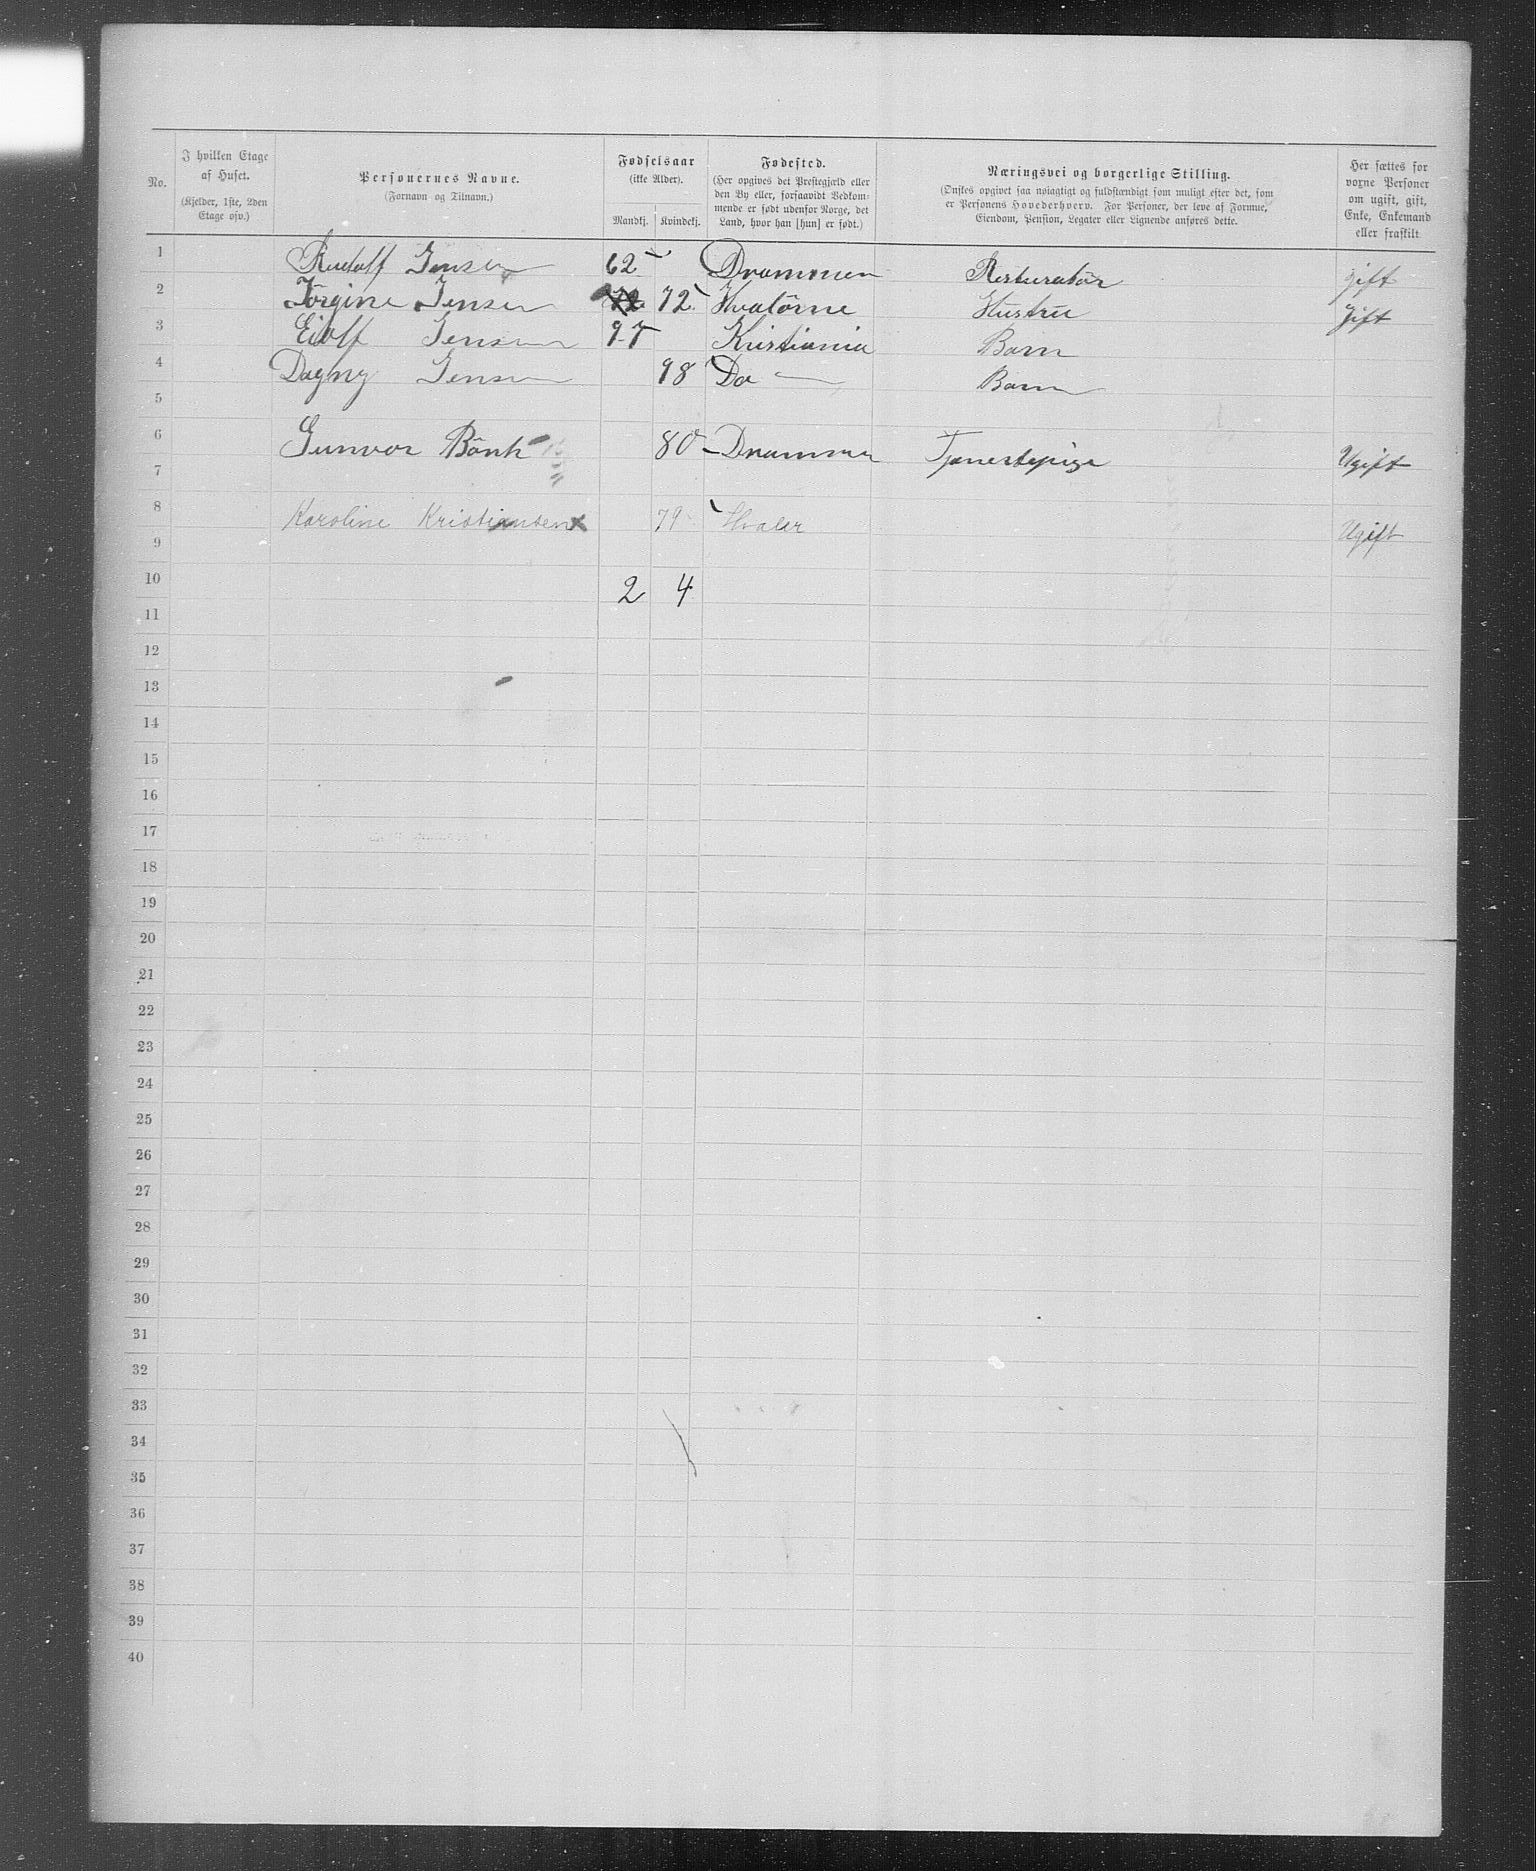 No.
I hvilken Etage af Huset.
(Kjelder, 1ste, 2den Etage osv.)
Personernes Navne.
(Fornavn og Tilnavn.)
Fødselsaar
(ikke Alder).
Mandkj. Kvindekj.
Fødested.
(Her opgives det Prestegjæld eller
den By eller, forsaavidt Vedkom-
mende er født udenfor Norge, det
Land, hvor han [hun] er født.)
Næringsvei og borgerlige Stilling.
(Ønskes opgivet saa nøiagtigt og fuldstændigt som muligt efter det, som
er Personens Hovederhverv. For Personer, der leve af Formue,
Eiendom, Pension, Legater eller Lignende anføres dette.
Her sættes for
voxne Personer
om ugift, gift,
Enke, Enkemand
eller fraskilt.
1 Rudolf Jensen 62 Drammen Resturatör gift
2 Jörgine Jensen 72 Hvalörne Hustru gift
3 Eiolf Jensen 97 Kristiania Barn
4 Dagny Jensen 98 Do — Barn
5
6 Gunvor Bönk 80 Drammen Tjenestepige Ugift
7
8 Karoline Kristiansen x 79 Hvaler Ugift
9
10 2 4
11
12
13
14
15
16
17
18
19
20
21
22
23
24
25
26
27
28
29
30
31
32
33
34
35
36
37
38
39
40